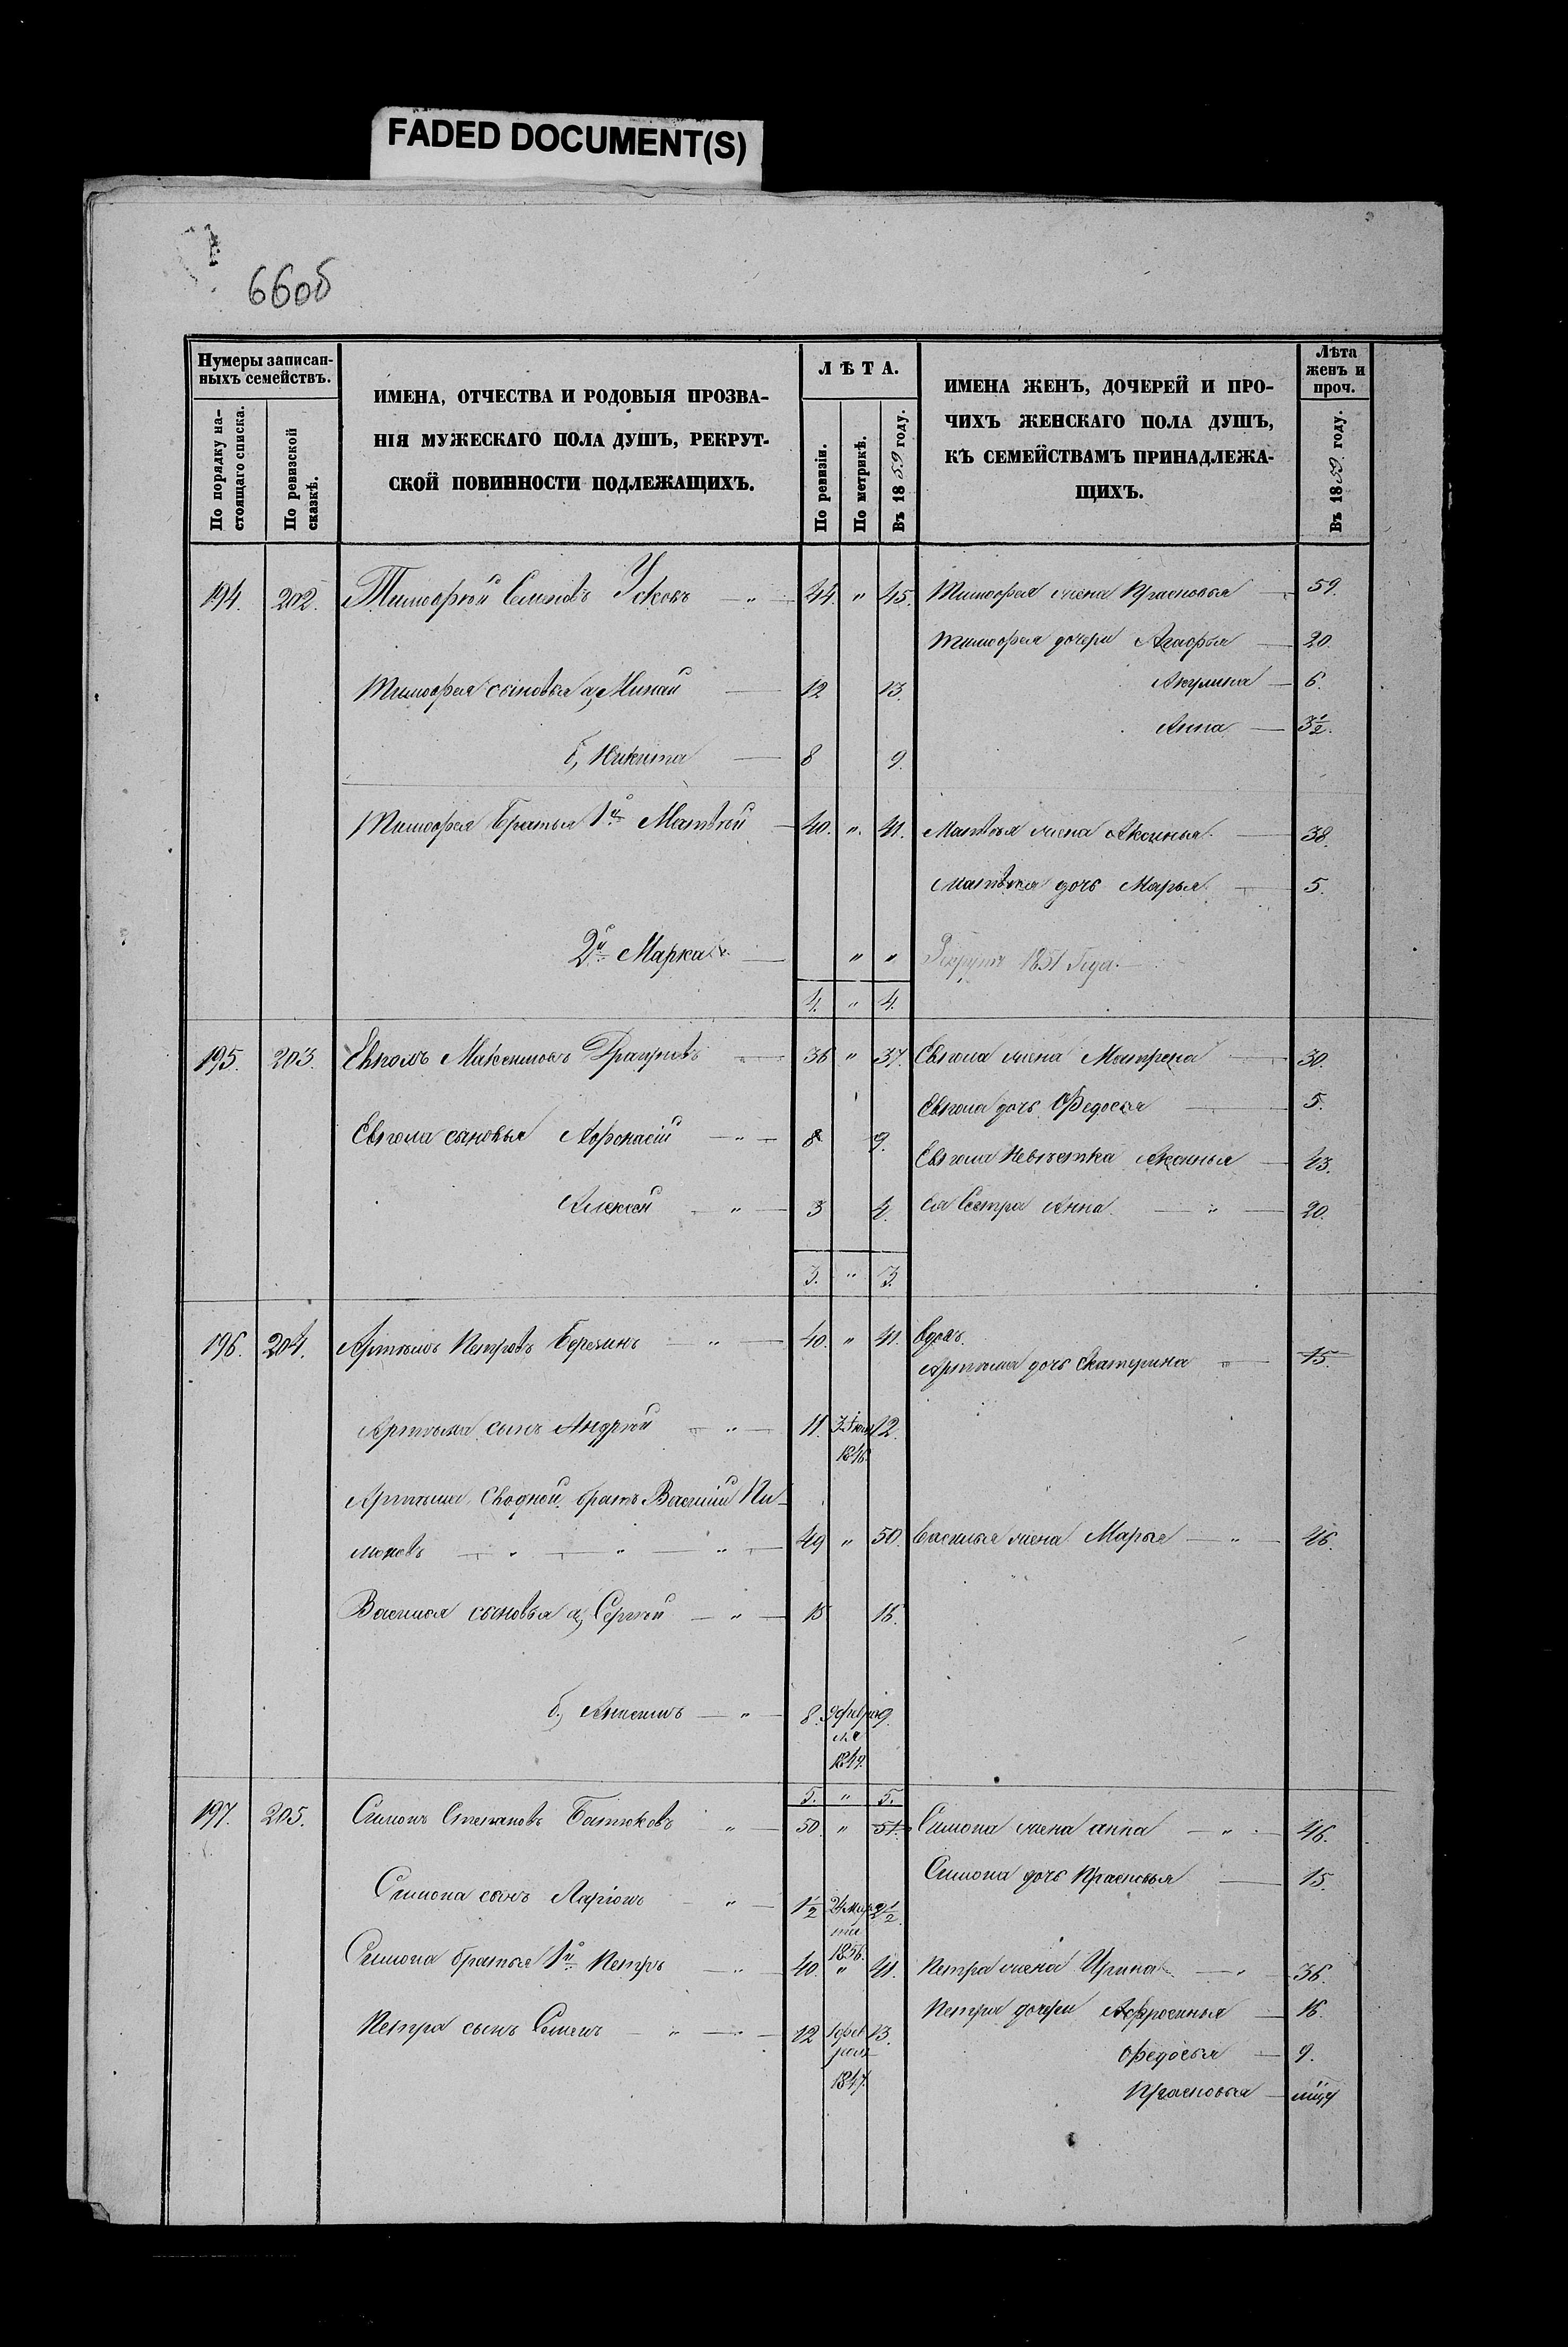 FADED DOCUMENT(S)
66об
Нумеры записан-
ныхъ семействъ.
По порядку на-
стоящаго списка.
По ревизской
сказкѣ.
ИМЕНА, ОТЧЕСТВА И РОДОВЫЯ ПРОЗВА-
НІЯ МУЖЕСКАГО ПОЛА ДУШЪ, РЕКРУТ-
СКОЙ ПОВИННОСТИ ПОДЛЕЖАЩИХЪ.
ЛѢТА.
По ревизіи.
По метрикѣ.
Въ 1859 году.
ИМЕНА ЖЕНЪ, ДОЧЕРЕЙ И ПРО-
ЧИХЪ ЖЕНСКАГО ПОЛА ДУШЪ,
КЪ СЕМЕЙСТВАМЪ ПРИНАДЛЕЖА-
ЩИХЪ.
Лѣта
женъ и
проч.
Въ 1859 году.
194. 202. Тимофѣй Семеновъ Усковъ — " — 44. " 45. Тимофея жена Прасковья — 59.
Тимофея дочери Агафья — 20.
Тимофея сыновья а, Минай — 12 13. Акулина — 6.
Анна — 3 1/2.
б, Никита — 8 9.
Тимофея Братья 1й Матвѣй — 40. " 41. Матвѣя жена Аксинья — 38.
Матвѣя дочь Марья — 5.
2й Марка — " " Рекрутъ 1851 Года.
4. " 4.
195. 203. Евтѣмъ Максимовъ — 36 " 37. жена Матрена — 30.
дочь Федосья — 5.
сыновья Афонасій — " — 8 9. Невѣстка Аксинья — 43.
Алексей — " — 3 4. ея Сестра Анна — " — 20.
3. " 3.
196. 204. Артемъ Петровъ Березинъ — " — 40. " 41. вдов.
Артема дочь Екатерина " — 15.
Артема сынъ Андрѣй — " — 11. 12.
1846
Артема Сводной братъ Василій Пи-
моновъ — " — " — " — 49 " 50. Василья жена Марья — " — 46.
Василя сыновья а, Сергѣй — " — 15 16.
б, — " — 8. 9 февра 9.
ля
1849.
5. " 5.
197. 205. Симонъ Степановъ Батюковъ " — 50 " 51. Симона жена анна — " — 46.
Симона дочь Прасковья — 15.
Симона сынъ Ларіонъ " — 1 1/2 24 мар 2 1/2.
та
1856.
Симона братья 1й Петръ — " — 40. " 41. Петра жена Ирина — " — 36.
Петра дочери Афросинья — 16.
Петра сынъ Семенъ — " — " — 12 1 фев 13.
раля
1847.
Федосья — 9.
Прасковья —